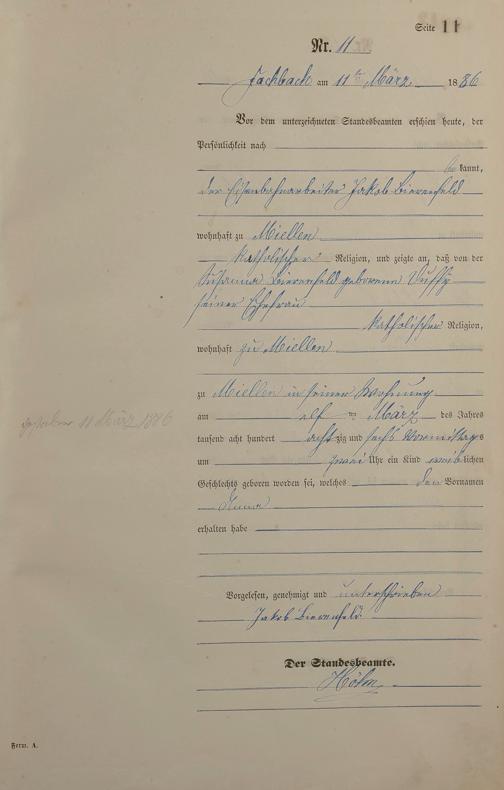 Seite 11
Nr. 11
Fachbach am 11ten März 1886
Vor dem unterzeichneten Standesbeamten erschien heute, der
Persönlichkeit nach
bekannt,
der Eisenbahnarbeiter Jakob Bierenfeld
wohnhaft zu Miellen
katholischer Religion, und zeigte an, daß von der
Susanna Bierenfeld geborenen
seiner Ehefrau
katholischer Religion,
wohnhaft zu Miellen
zu Miellen in seiner Wohnung
am elf ten März des Jahres
tausend acht hundert acht zig und sechs Vormittags
um zwei Uhr ein Kind weiblichen
Geschlechts geboren worden sei, welches den Vornamen
Anna
erhalten habe
gestorben 11 März 1886
Vorgelesen, genehmigt und unterschrieben
Jakob Bierenfeld
Der Standesbeamte.
Form. A.